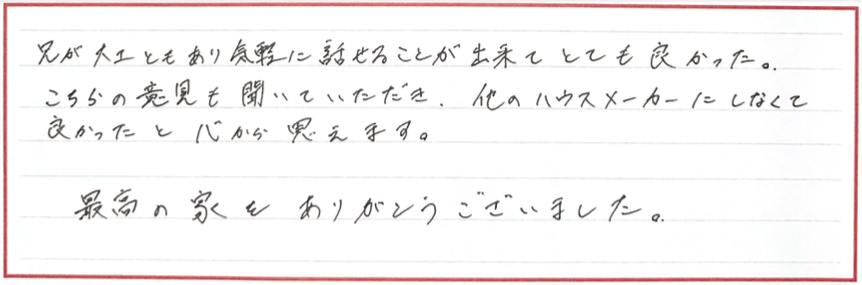 兄が大工ともあり気軽に話せることが出来てとても良かった。
こちらの意見も聞いていただき、他のハウスメーカーにしなくて
良かったと心から思えます。
最高の家をありがとうございました。